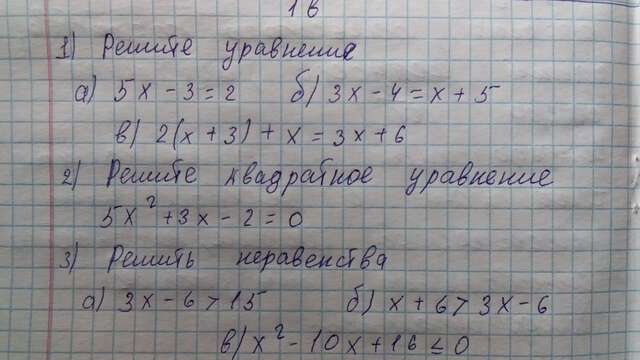 1 в
1) Решите уравнения
а) 5x - 3 = 2 б) 3x - 4 = x + 5
в) 2(x + 3) + x = 3x + 6
2) Решите квадратное уравнение
5x² + 3x - 2 = 0
3) Решить неравенства
а) 3x - 6 > 15 б) x + 6 > 3x - 6
в) x² - 10x + 16 ≤ 0